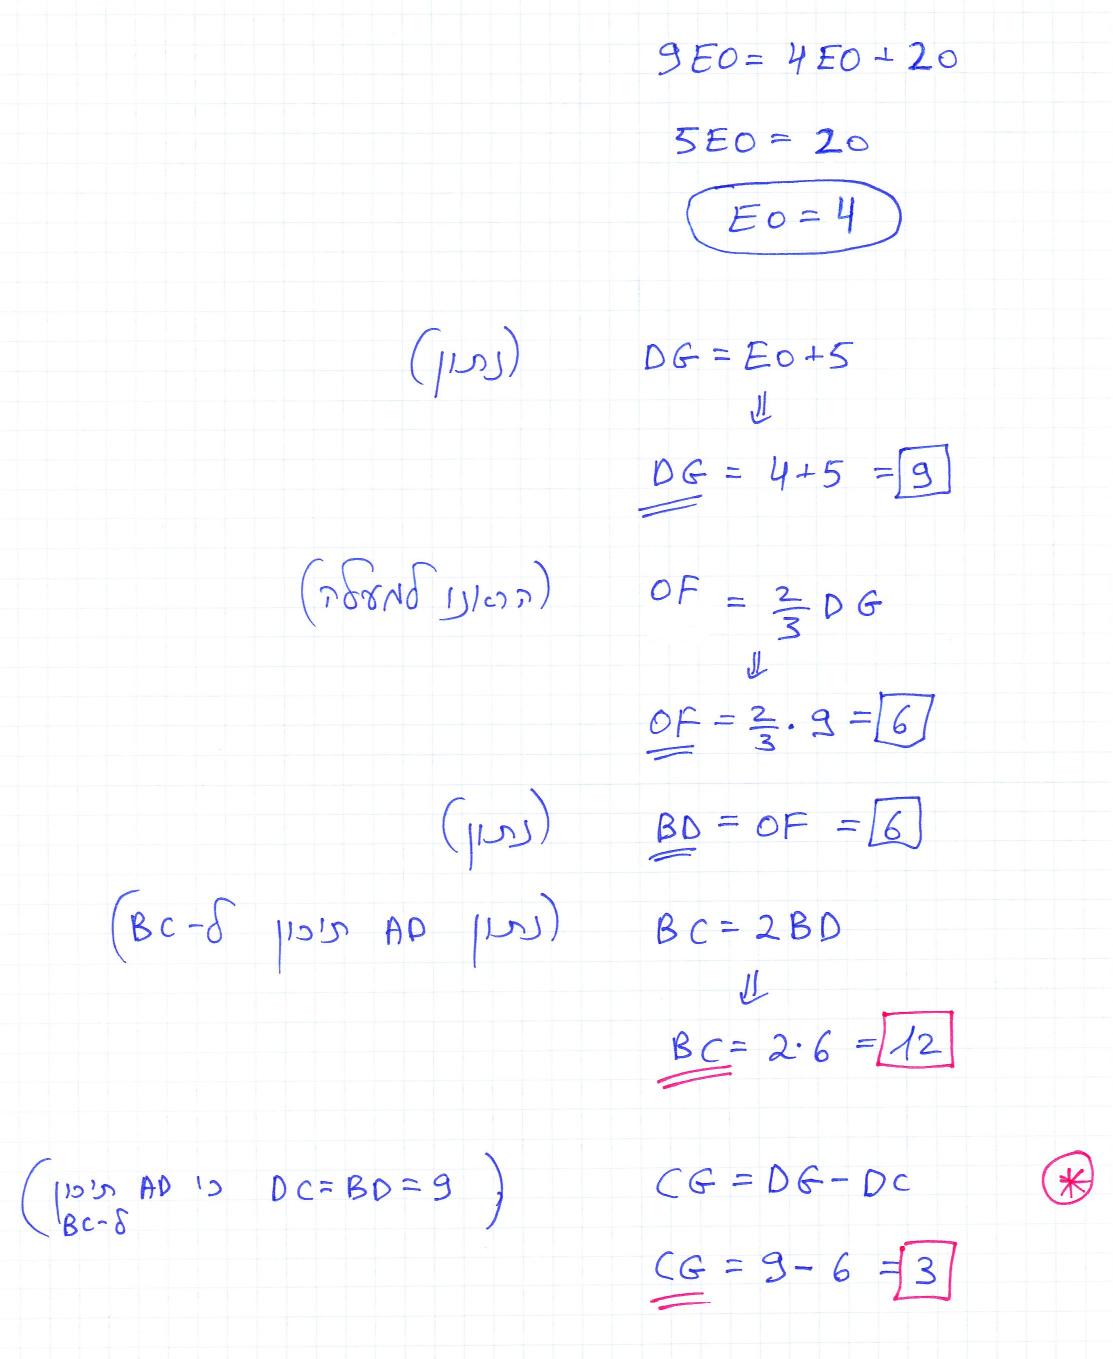 9EO = 4EO + 20
5EO = 20
EO = 4
DG = EO + 5 (נתון)
⇓
DG = 4 + 5 = 9
OF = 2/3 DG (הראנו למעלה)
⇓
OF = 2/3 · 9 = 6
BD = OF = 6 (נתון)
BC = 2BD (נתון AD תיכון ל-BC)
⇓
BC = 2 · 6 = 12
* CG = DG - DC (DC = BD = 9 כי AD תיכון ל-BC)
CG = 9 - 6 = 3